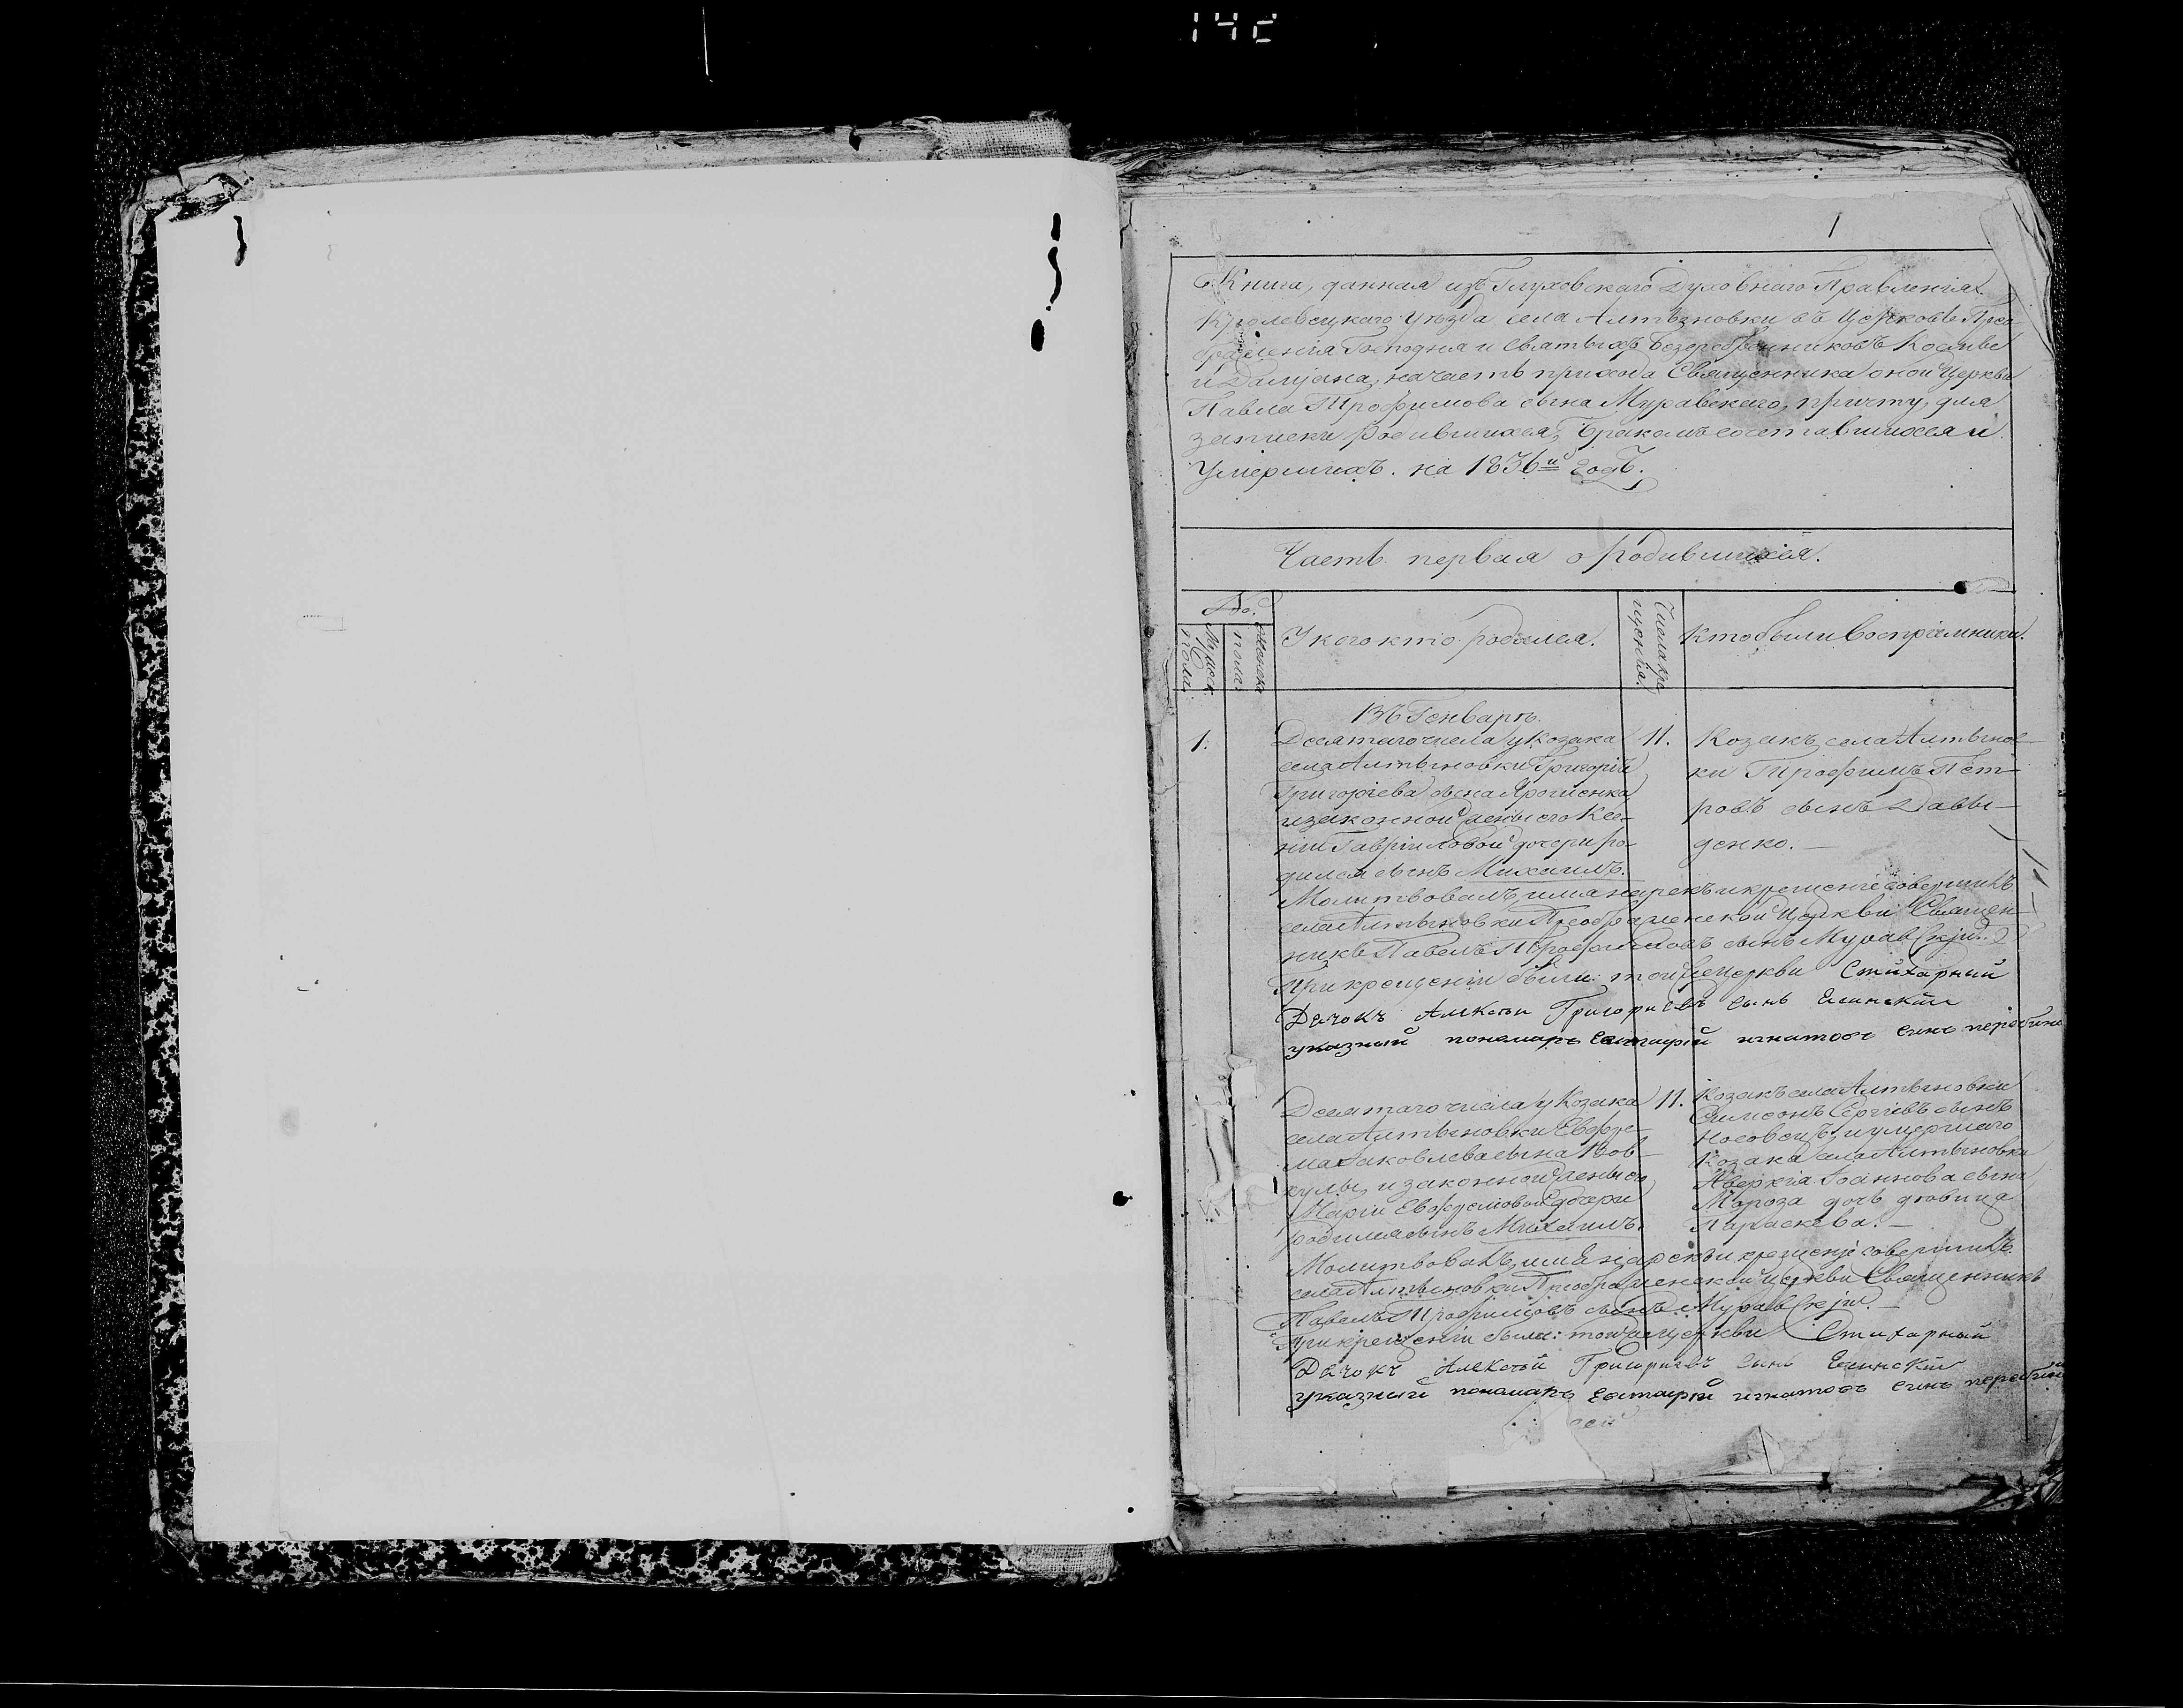 142
1
Книга, данная изъ Глуховскаго Духовнаго Правленія
Кролевецкаго уѣзда села Алтыновки въ Церковь Прео-
браженія Господня и Святыхъ Безсребренниковъ Космы
и Даміана, начасть прихода Священника оной Церкви
Павла Трофимова сына Муравскаго, причту, для
записки родившихся, бракомъ сочетавшихся и
умершихъ. на 1836й годъ.
Часть первая о родившихся.
No.
Мужеск. пола.
Женска пола.
У кого кто родился.
Числа кре
щенія.
Кто были Воспріемники.
Въ Генварѣ.
1.
Десятаго числа у Козака
села Алтыновки Григорія
Григоріева сына
и законной жены его Ксе-
ніи Гавріиловой дочери ро-
дился сынъ Михаилъ.
11.
Козакъ села Алтынов-
ки Трофимъ Пет-
ровъ сынъ Давы-
денко.
Молитвовалъ, имя нарекъ и крещеніе совершилъ
села Алтыновки Преображенской Церкви Священ-
никъ Павелъ Трофимовъ сынъ Муравскій.
При крещеніи были: той же Церкви Стихарный
Дячокъ Алексѣй Григориевъ сынъ Елинский
указный пономарь Евстафий игнатовъ синъ
Десятаго числа у Козака
села Алтыновки Ефре-
ма Яковлева сына Вов-
кулы, и законной жены его
Маріи Ефремовой дочери
родился сынъ Михаилъ.
11.
Козакъ села Алтыновки
Симеонъ Сергіевъ сынъ
Носовецъ, и умершаго
Козака села Алтыновки
Аверкія Іоаннова сына
Мороза дочь дѣвица
Параскева.
Молитвовалъ, имя нарекъ и крещеніе совершилъ
села Алтыновки Преображенской Церкви Священникъ
Павелъ Трофимовъ сынъ Муравскій.
При крещеніи были: той же Церкви Стихарный
Дячокъ Алексѣй Григориевъ сынъ Елинский
указный пономарь Евстафий игнатовъ синъ